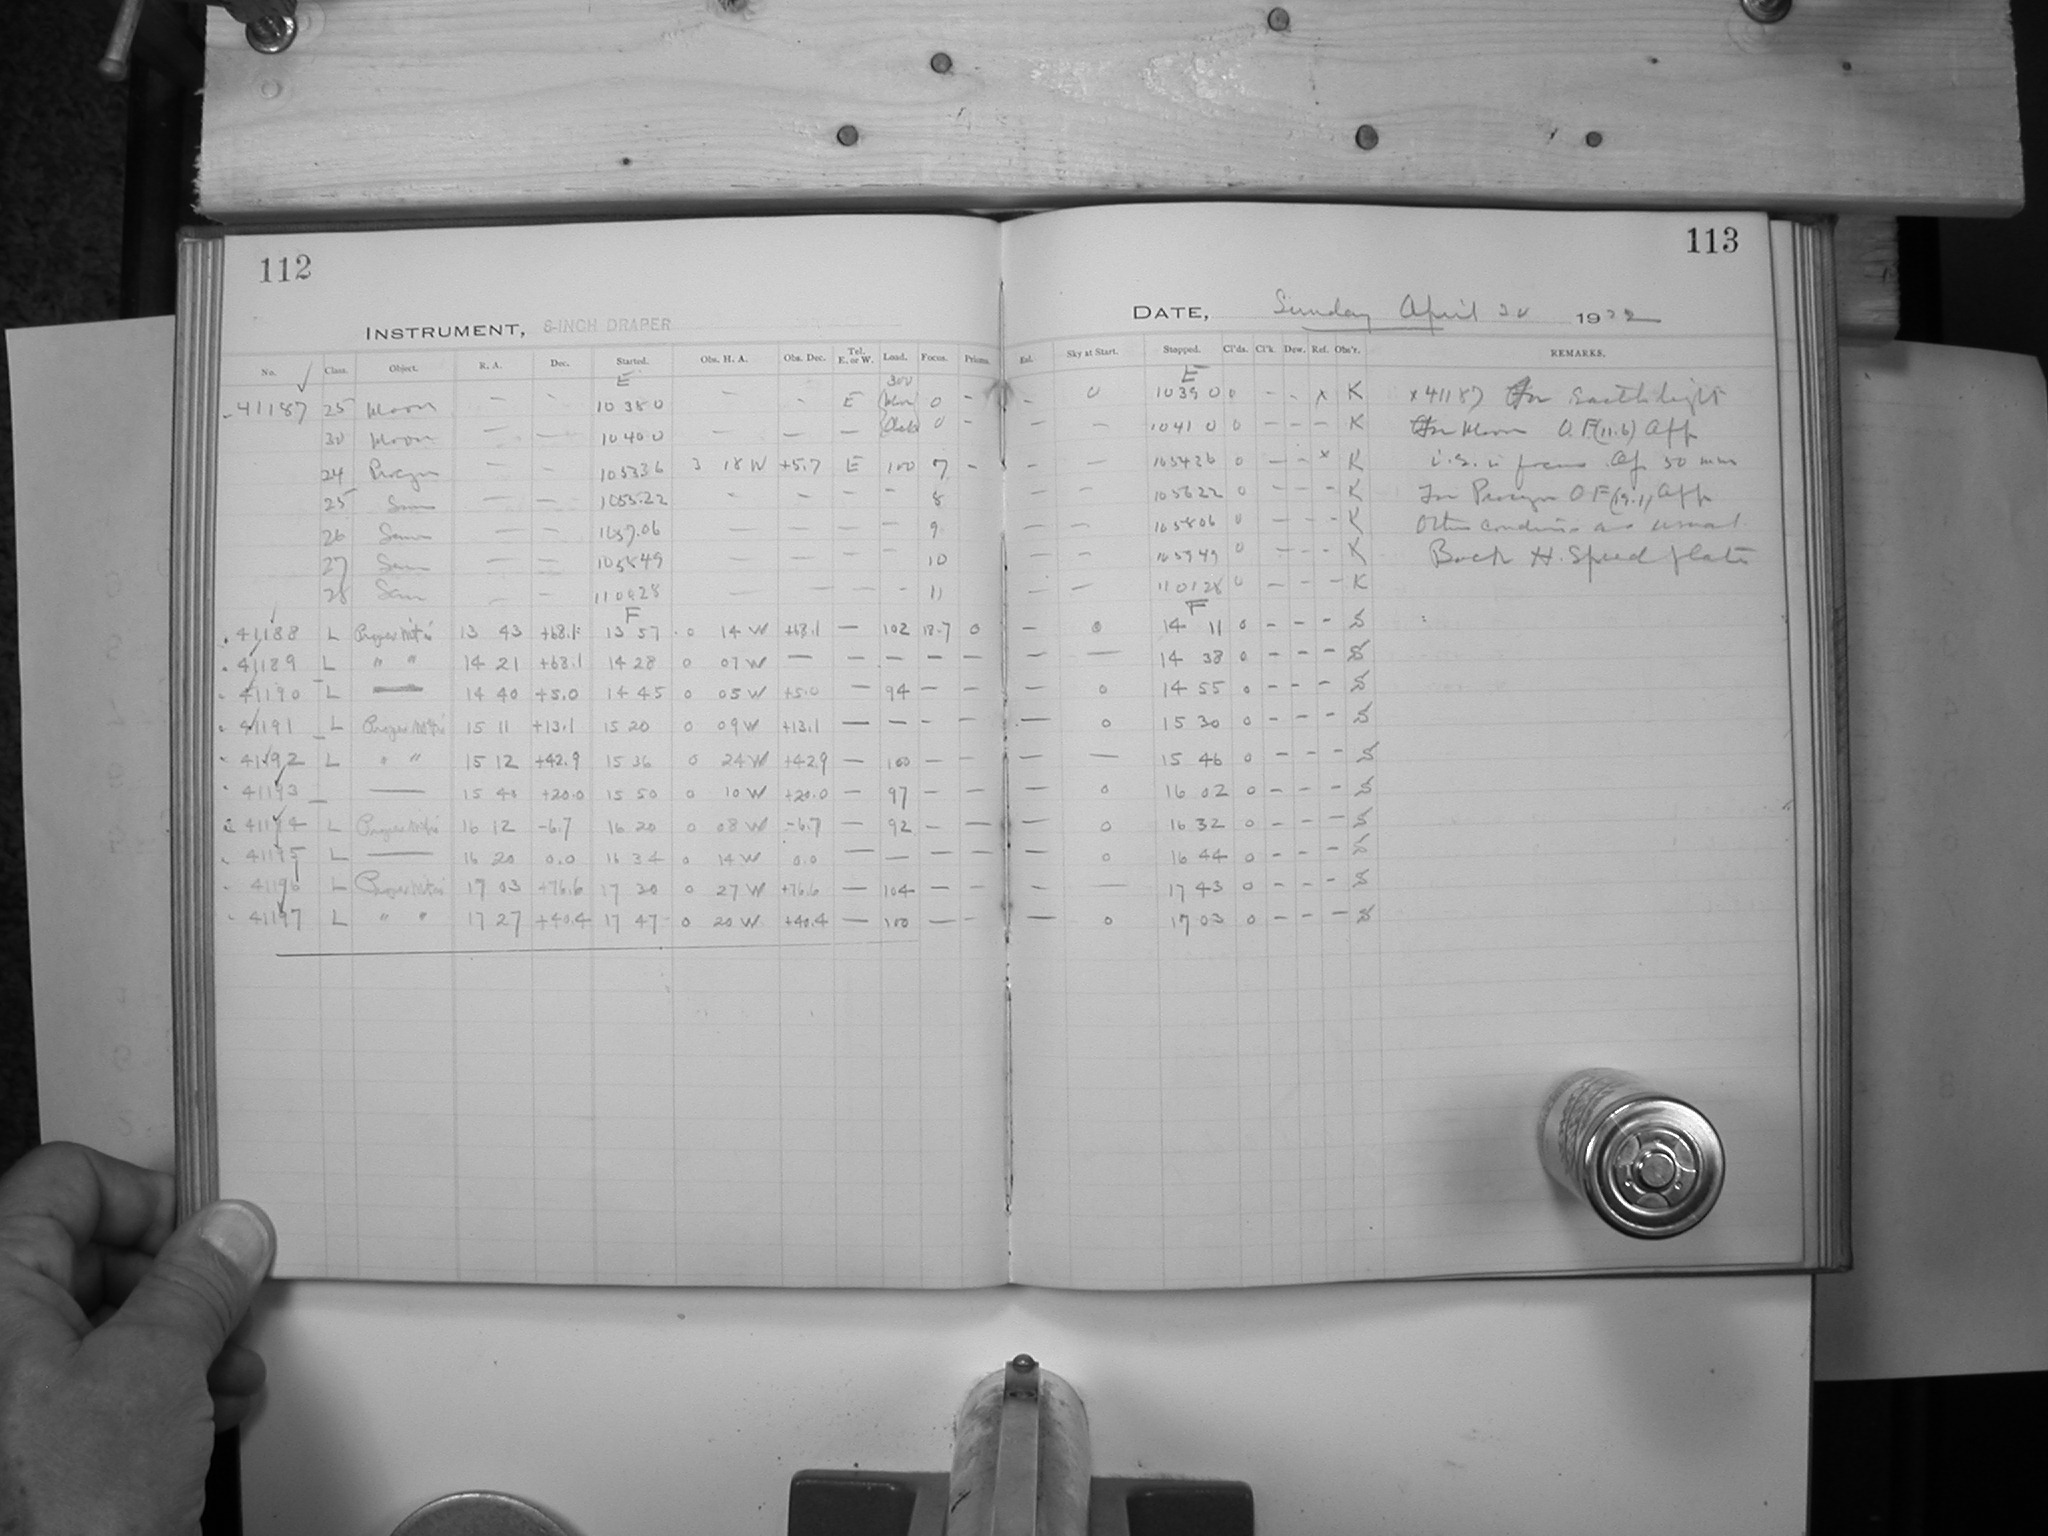 112
113
INSTRUMENT, 8-INCH DRAPER
DATE, Sunday April 30 1922
No. Class. Object. R. A. Dec. Started. Obs. H. A. Obs. Dec. Tel. E. or W. Load. Focus. Prisms. Ext. Sky at Start. Stopped. Cl'ds. Cl'k. Dew. Ref. Obs'r. REMARKS.
E 300 E
41187 25 Moon — — 10 38 0 — — E 0 — — 0 10 39 0 0 — — x K x 41187 For Earthlight
30 Moon — — 10 40 0 — — — 0 — — — 10 41 0 0 — — — K For Moon O.F. (11.6) App
24 Procyon — — 10 53 36 3 18 W +5.7 E 100 7 — — — 10 54 26 0 — — x K i.e. in focus Ap 50 mm
25 Same — — 10 55 22 — — — — 8 — — 10 56 22 0 — — — K For Procyon O F (19.1) App
26 Same — — 10 57 06 — — — — 9 — — 10 58 06 0 — — — K Other conditions as usual.
27 Same — — 10 58 49 — — — — 10 — — 10 59 49 0 — — — K Both H. Speed plates
28 Same — — 11 00 28 — — — — 11 — — 11 01 28 0 — — — K
F F
41188 L Proper Mot's 13 43 +68.1 13 57 0 14 W +68.1 — 102 18.7 0 — 0 14 11 0 — — — S
41189 L " " 14 21 +68.1 14 28 0 07 W — — — — — — — 14 38 0 — — — S
41190 L — 14 40 +5.0 14 45 0 05 W +5.0 — 94 — — — 0 14 55 0 — — — S
41191 L Proper Mot's 15 11 +13.1 15 20 0 09 W +13.1 — — — — — 0 15 30 0 — — — S
41192 L " " 15 12 +42.9 15 36 0 24 W +42.9 — 100 — — — — 15 46 0 — — — S
41193 — — 15 40 +20.0 15 50 0 10 W +20.0 — 97 — — — 0 16 02 0 — — — S
41194 L Proper Mot's 16 12 -6.7 16 20 0 08 W -6.7 — 92 — — — 0 16 32 0 — — — S
41195 L — 16 20 0.0 16 34 0 14 W 0.0 — — — — — 0 16 44 0 — — — S
41196 L Proper Mot's 17 03 +76.6 17 30 0 27 W +76.6 — 104 — — — — 17 43 0 — — — S
41197 L " " 17 27 +40.4 17 47 0 20 W +40.4 — 100 — — — 0 17 03 0 — — — S